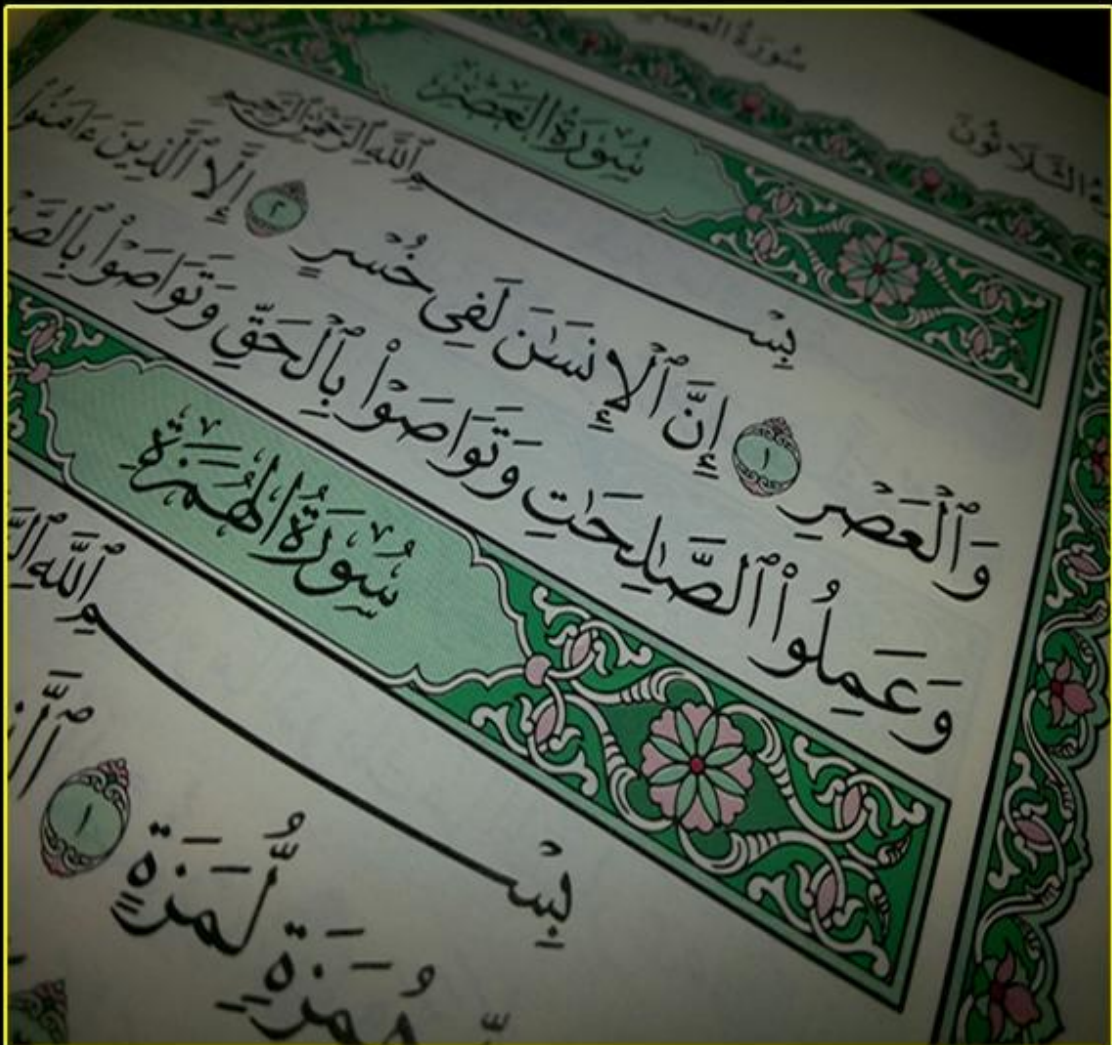 سورة العصر
الثلاثون
سُورَةُ العَصْرِ
بِسْمِ ٱللَّهِ ٱلرَّحْمَٰنِ ٱلرَّحِيمِ
وَٱلْعَصْرِ ١ إِنَّ ٱلْإِنسَٰنَ لَفِى خُسْرٍ ٢ إِلَّا ٱلَّذِينَ ءَامَنُوا۟
وَعَمِلُوا۟ ٱلصَّٰلِحَٰتِ وَتَوَاصَوْا۟ بِٱلْحَقِّ وَتَوَاصَوْا۟
سُورَةُ الهُمَزَةِ
بِسْمِ ٱللَّهِ
هُمَزَةٍ لُّمَزَةٍ ١